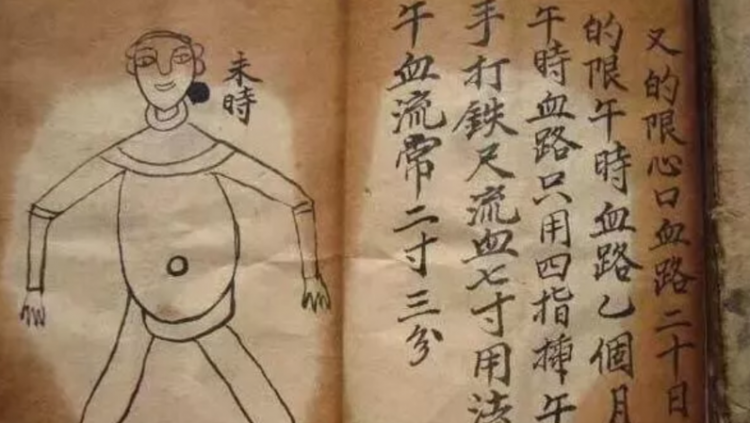 又的限心口血路二十日
的限午時血路乙個月
午時血路只用四指挿午
手打鉄尺流血七寸用法
午血流常二寸三分
未時